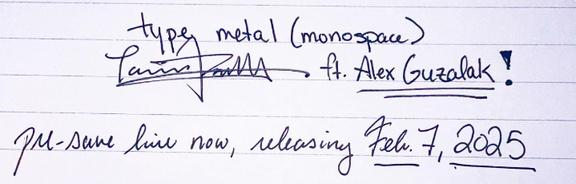 type metal (monospace)
ft. Alex Guzalak!
pre-save live now, releasing Feb. 7, 2025